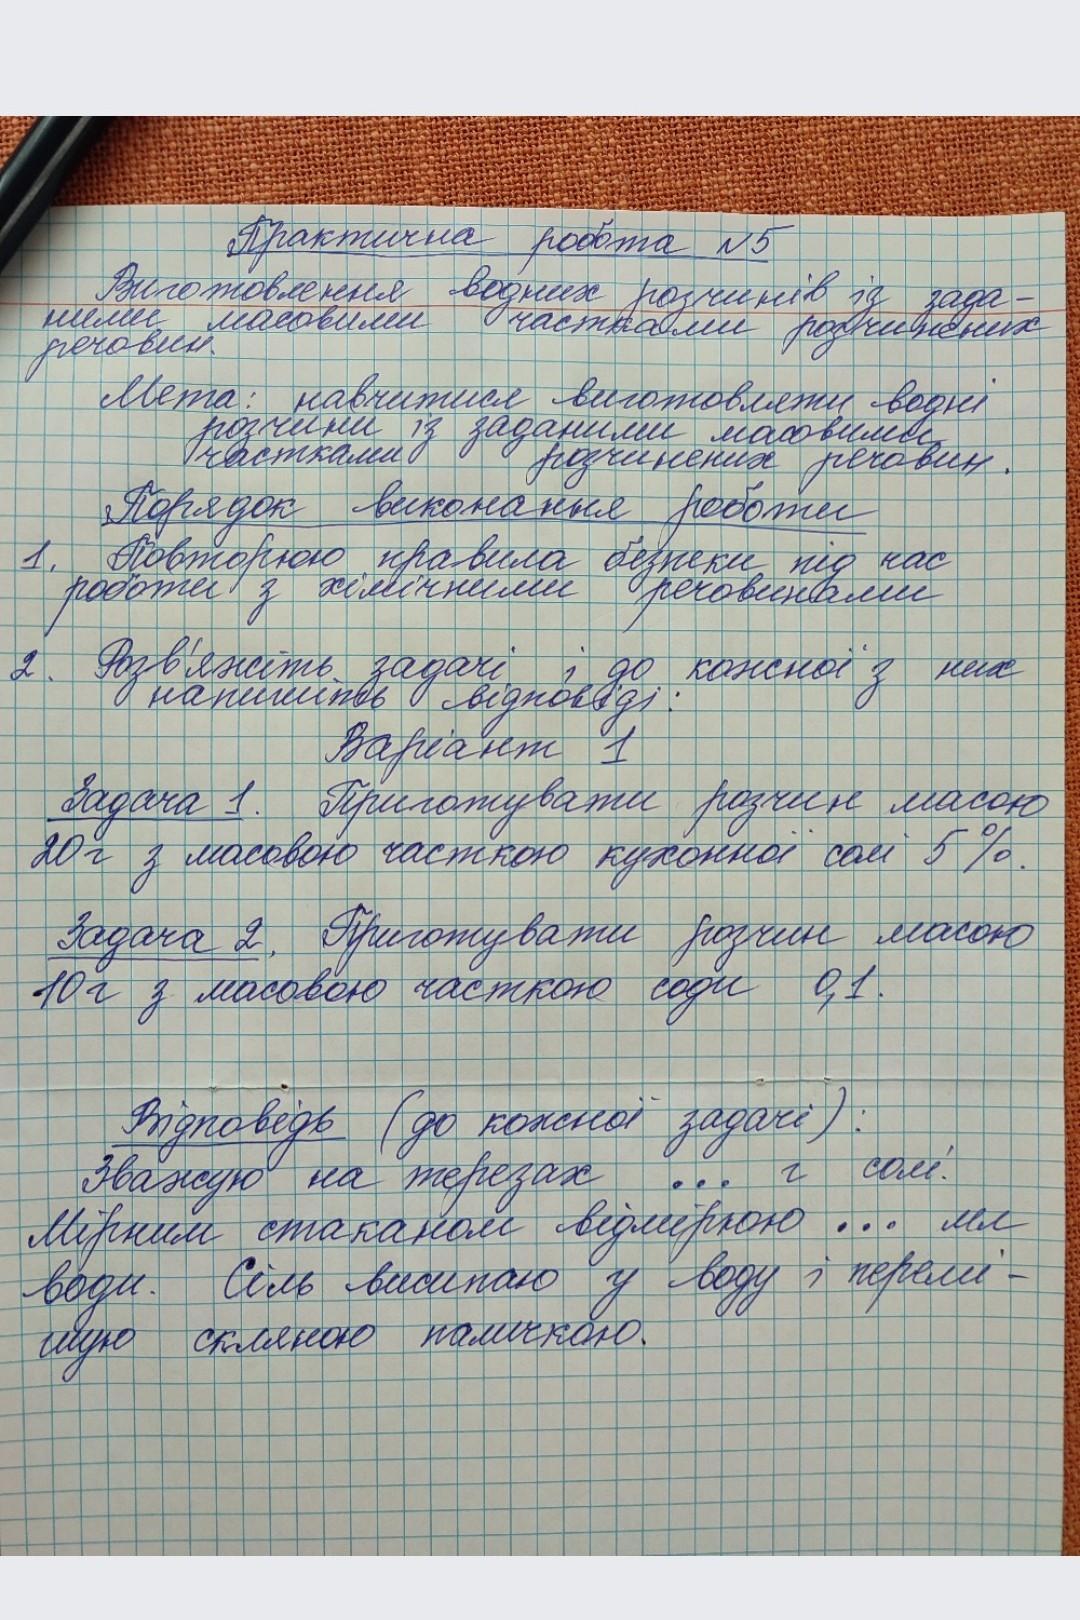 Практична робота №5
Виготовлення водних розчинів із зада-
ними масовими частками розчинених
речовин.
Мета: навчитися виготовляти водні
розчини із заданими масовими
частками розчинених речовин.
Порядок виконання роботи
1. Повторюю правила безпеки під час
роботи з хімічними речовинами
2. Розв'яжіть задачі і до кожної з них
напишіть відповіді:
Варіант 1
Задача 1. Приготувати розчин масою
20г з масовою часткою кухонної солі 5%.
Задача 2. Приготувати розчин масою
10г з масовою часткою соди 0,1.
Відповідь (до кожної задачі):
Зважую на терезах ... г солі.
Мірним стаканом відмірюю ... мл
води. Сіль висипаю у воду і перемі-
шую скляною паличкою.